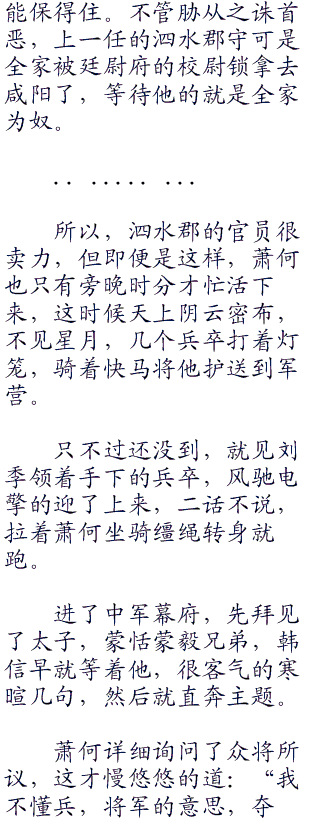 能保得住。不管胁从之诛首
恶，上一任的泗水郡守可是
全家被廷尉府的校尉锁拿去
咸阳了，等待他的就是全家
为奴。
.. ..... ...
所以，泗水郡的官员很
卖力，但即便是这样，萧何
也只有旁晚时分才忙活下
来，这时候天上阴云密布，
不见星月，几个兵卒打着灯
笼，骑着快马将他护送到军
营。
只不过还没到，就见刘
季领着手下的兵卒，风驰电
掣的迎了上来，二话不说，
拉着萧何坐骑缰绳转身就
跑。
进了中军幕府，先拜见
了太子，蒙恬蒙毅兄弟，韩
信早就等着他，很客气的寒
暄几句，然后就直奔主题。
萧何详细询问了众将所
议，这才慢悠悠的道：“我
不懂兵，将军的意思，夺